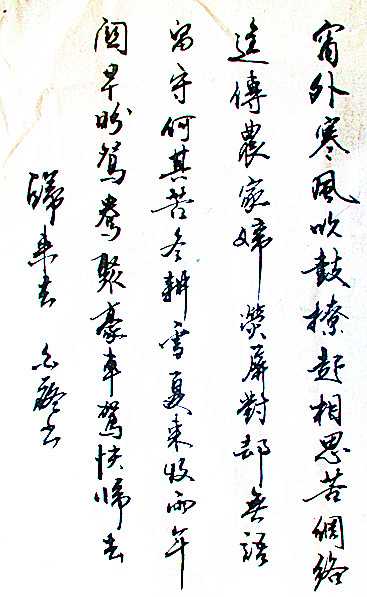 窗外寒風吹鼓撩起相思苦網絡
傳農家婦熒屏對却無語
留守何其苦冬耕雪夏來收雨年
關早盼鴛鴦聚豪車駕快歸去
歸來去 書